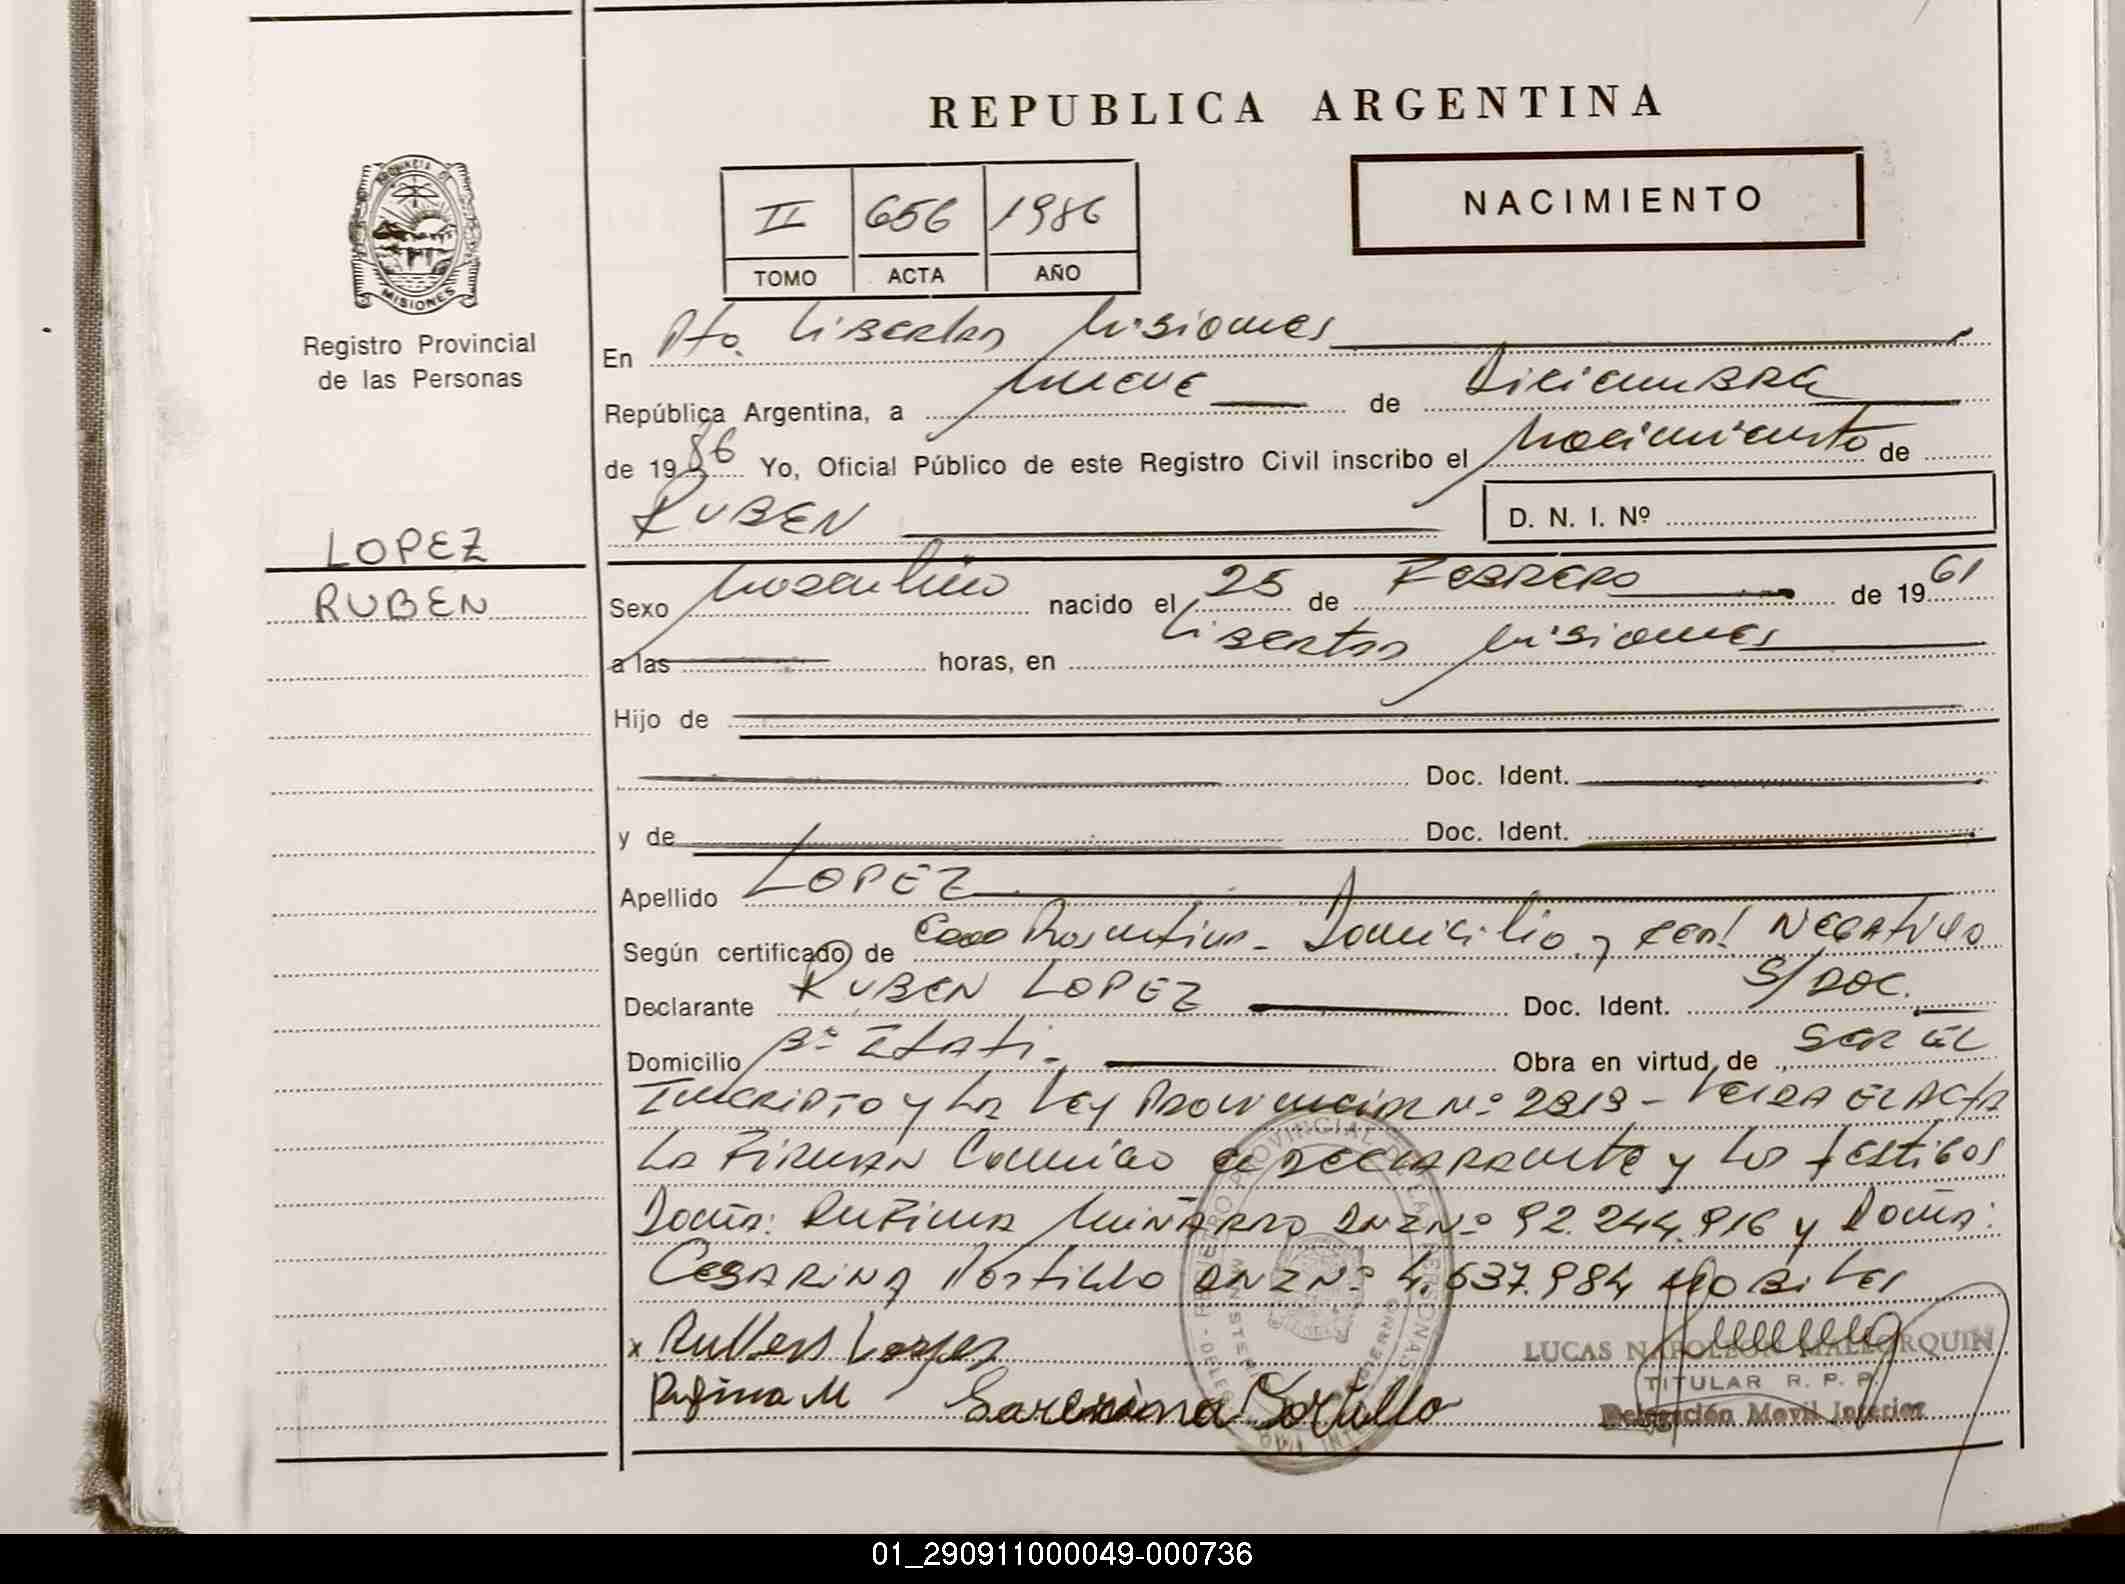 REPUBLICA ARGENTINA
NACIMIENTO
II 656 1986
TOMO ACTA AÑO
PROVINCIA DE
MISIONES
Registro Provincial
de las Personas
LOPEZ
RUBEN
En Pto. Libertad Misiones
República Argentina, a nueve de Diciembre
de 1986 Yo, Oficial Público de este Registro Civil inscribo el Nacimiento de
RUBEN
D. N. I. Nº
Sexo Masculino nacido el 25 de Febrero de 1961
a las horas, en Libertad Misiones
Hijo de
Doc. Ident.
y de Doc. Ident.
Apellido LOPEZ
Según certificado de Domicilio y cert Negativo
Declarante RUBEN LOPEZ Doc. Ident. S/DOC.
Domicilio Bº Itati. Obra en virtud de SER EL
Inscripto y La Ley Provincial Nº Leida el Acta
La Firman Conmigo el Declarante y los testigos
Doña: Rufina DNI Nº 92.244.916 y Doña:
Cesarina Portillo DNI Nº 4.637.984 Habiles
x Rubens Lopez
Rufina M Sarerina Portillo
LUCAS NAPOLEON MALLORQUIN
TITULAR R. P. P.
Delegación Movil Interior
01_290911000049-000736